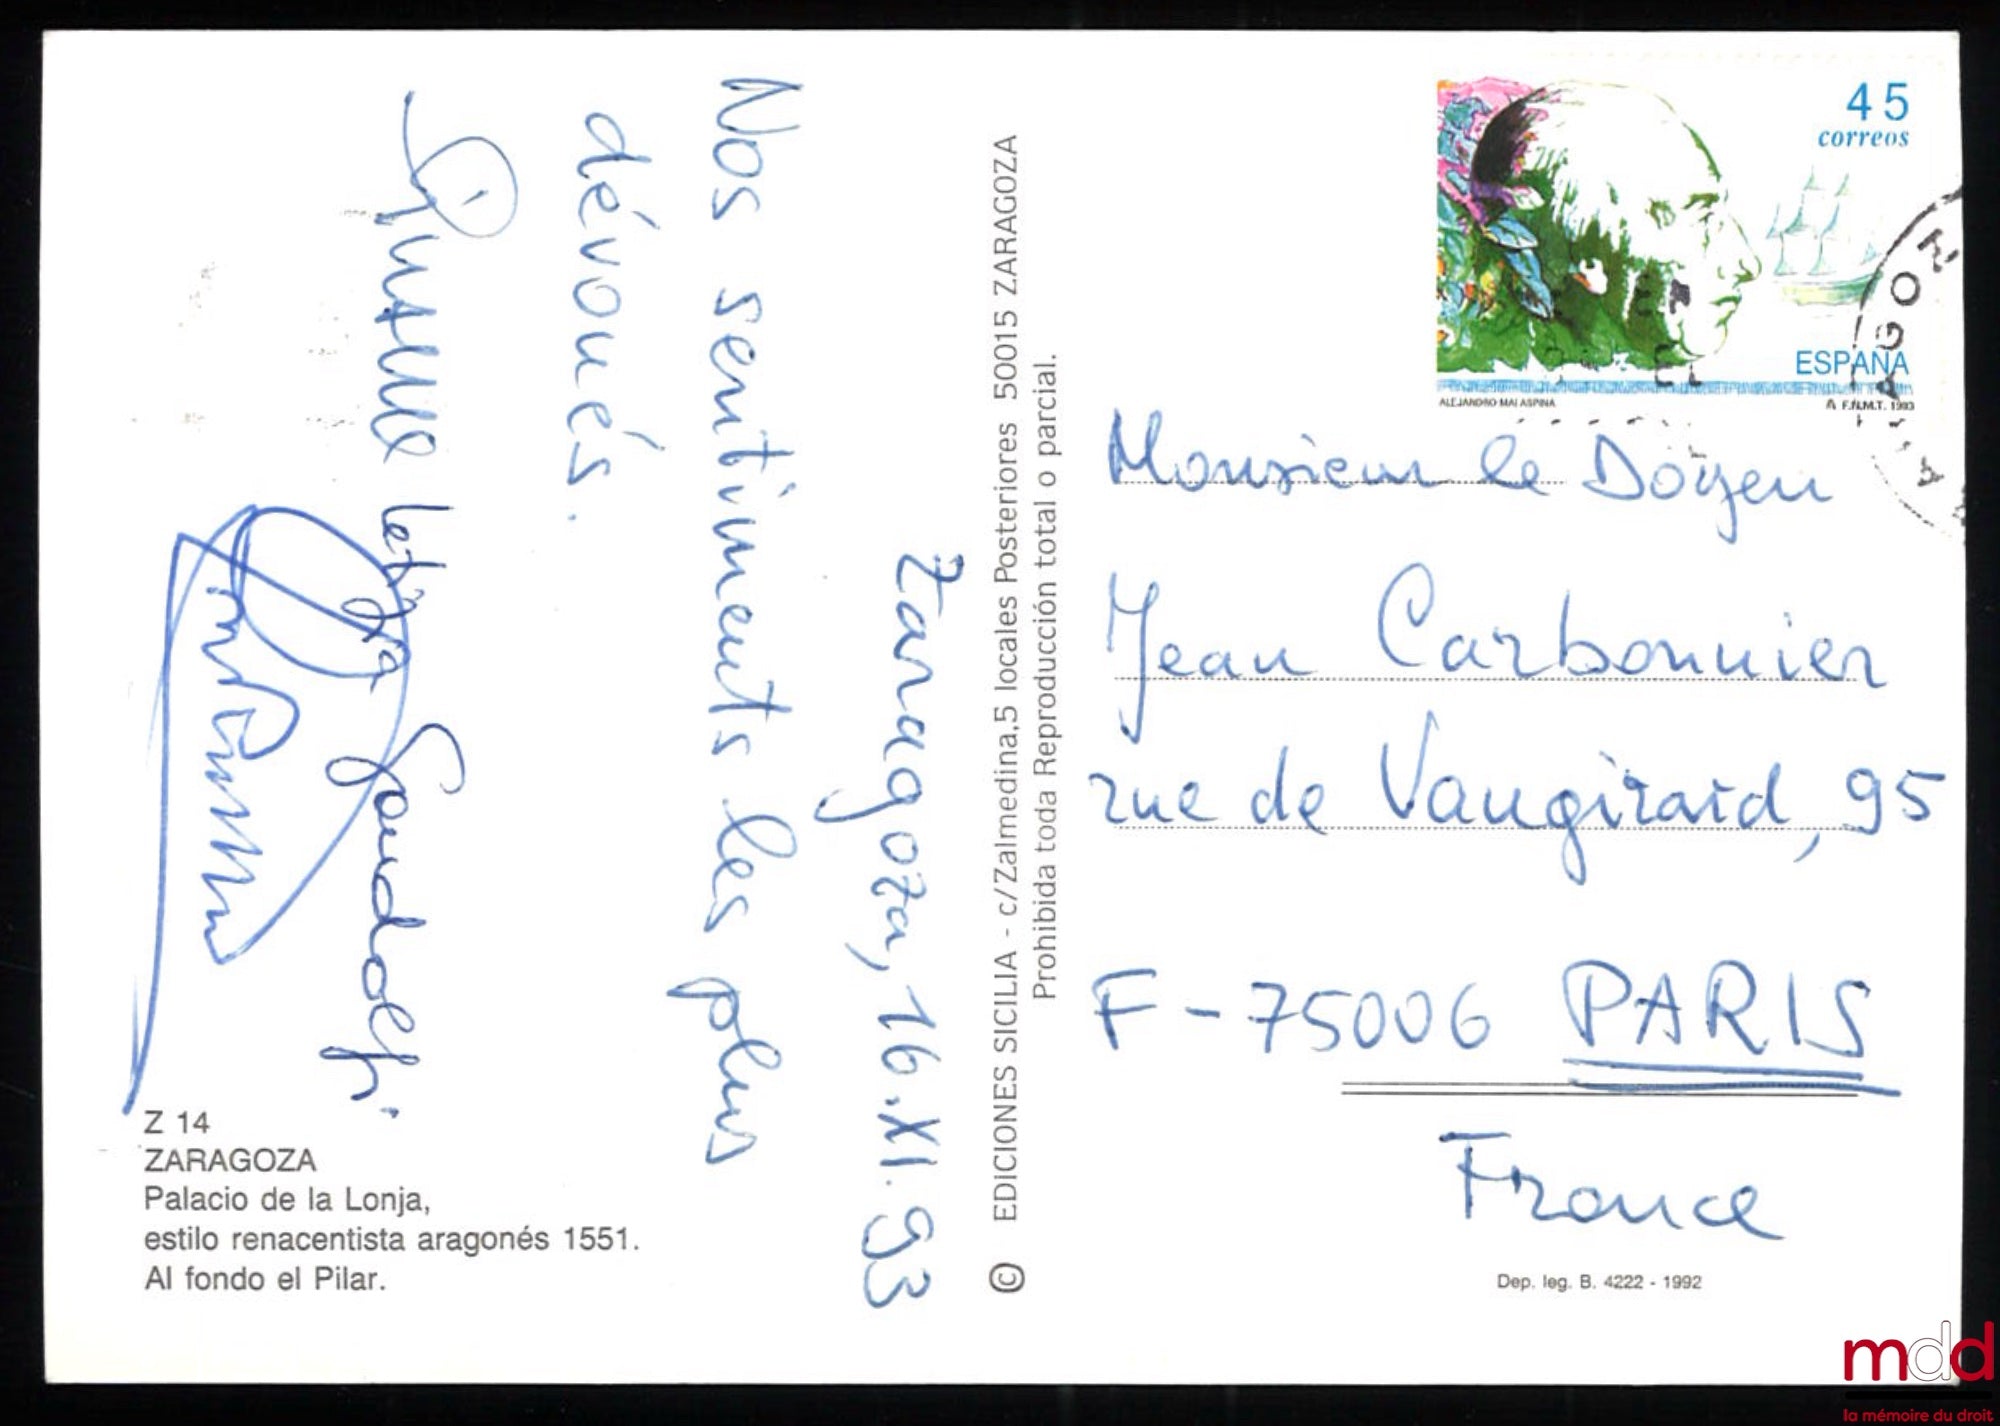 Zaragoza, 16.XI.93
Nos sentiments les plus
dévoués.
Gandolfi
Z 14
ZARAGOZA
Palacio de la Lonja,
estilo renacentista aragonés 1551.
Al fondo el Pilar.
© EDICIONES SICILIA - c/Zalmedina,5 locales Posteriores 50015 ZARAGOZA
Prohibida toda Reproducción total o parcial.
45
correos
ESPAÑA
ALEJANDRO MALASPINA
F.N.M.T. 1993
Monsieur le Doyen
Jean Carbonnier
rue de Vaugirard, 95
F-75006 PARIS
France
Dep. leg. B. 4222 - 1992
mdd
la mémoire du droit